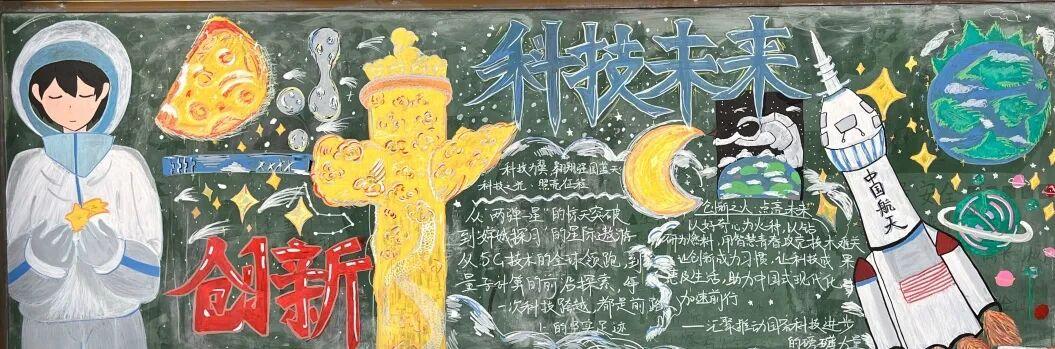 科技未来
创新
科技为翼 翱翔强国蓝天
科技之光 照亮征程
从“两弹一星”的惊天突破
到“嫦娥探月”的星际遨游
从5G技术的全球领跑,到
量子计算的前沿探索,每
一次科技跨越,都是前路
上的坚实足迹
“创新之火 点亮未来”
以好奇心为火种,以钻
研为燃料,用智慧青春攻克技术难关
让创新成为习惯,让科技成果
惠及生活,助力中国式现代化
加速前行
——汇聚推动国家科技进步
的磅礴力量
中国航天